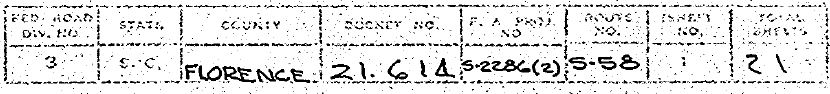 FED. ROAD DIV. NO. STATE COUNTY DOCKET NO. F. A. PROJ. NO. ROUTE NO. SHEET NO. TOTAL SHEETS
3 S. C. FLORENCE 21.614 S-2286(2) S-58 1 21